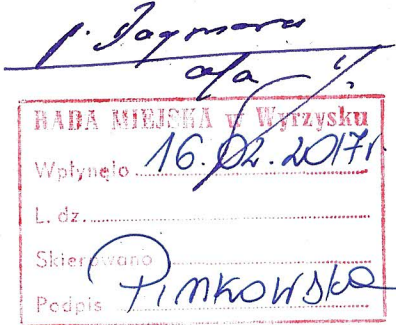 p. Dagmara
a/a
RADA MIEJSKA w Wyrzysku
Wpłynęło 16.02.2017r.
L. dz.
Skierowano
Podpis Pinkowska